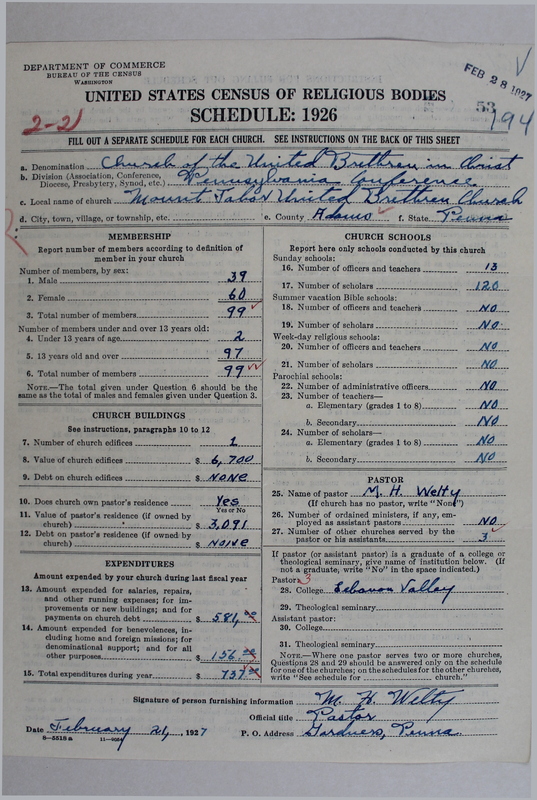 DEPARTMENT OF COMMERCE
BUREAU OF THE CENSUS
WASHINGTON
FEB 28 1927
UNITED STATES CENSUS OF RELIGIOUS BODIES
SCHEDULE: 1926
53
194
2-21
FILL OUT A SEPARATE SCHEDULE FOR EACH CHURCH. SEE INSTRUCTIONS ON THE BACK OF THIS SHEET
a. Denomination Church of the United Brethren in Christ
b. Division (Association, Conference, Diocese, Presbytery, Synod, etc.) Pennsylvania Conference
c. Local name of church Mount Tabor United Brethren Church
d. City, town, village, or township, etc. e. County Adams f. State Penna
MEMBERSHIP
Report number of members according to definition of
member in your church
Number of members, by sex:
1. Male 39
2. Female 60
3. Total number of members 99
Number of members under and over 13 years old:
4. Under 13 years of age 2
5. 13 years old and over 97
6. Total number of members 99
NOTE.—The total given under Question 6 should be the
same as the total of males and females given under Question 3.
CHURCH BUILDINGS
See instructions, paragraphs 10 to 12
7. Number of church edifices 1
8. Value of church edifices $ 6,700
9. Debt on church edifices $ NONE
10. Does church own pastor's residence Yes
Yes or No
11. Value of pastor's residence (if owned by
church) $ 3,091
12. Debt on pastor's residence (if owned by
church) $ NONE
EXPENDITURES
Amount expended by your church during last fiscal year
13. Amount expended for salaries, repairs,
and other running expenses; for im-
provements or new buildings; and for
payments on church debt $ 581.00
14. Amount expended for benevolences, in-
cluding home and foreign missions; for
denominational support; and for all
other purposes $ 156.00
15. Total expenditures during year $ 737.00
CHURCH SCHOOLS
Report here only schools conducted by this church
Sunday schools:
16. Number of officers and teachers 13
17. Number of scholars 120
Summer vacation Bible schools:
18. Number of officers and teachers NO
19. Number of scholars NO
Week-day religious schools:
20. Number of officers and teachers NO
21. Number of scholars NO
Parochial schools:
22. Number of administrative officers NO
23. Number of teachers—
a. Elementary (grades 1 to 8) NO
b. Secondary NO
24. Number of scholars—
a. Elementary (grades 1 to 8) NO
b. Secondary NO
PASTOR
25. Name of pastor M. H. Welty
(If church has no pastor, write "None")
26. Number of ordained ministers, if any, em-
ployed as assistant pastors NO
27. Number of other churches served by the
pastor or his assistants 3
If pastor (or assistant pastor) is a graduate of a college or
theological seminary, give name of institution below. (If
not a graduate, write "No" in the space indicated.)
Pastor: 3
28. College Lebanon Valley
29. Theological seminary
Assistant pastor:
30. College
31. Theological seminary
NOTE.—Where one pastor serves two or more churches,
Questions 28 and 29 should be answered only on the schedule
for one of the churches; on the schedules for the other churches,
write "See schedule for church."
Signature of person furnishing information M. H. Welty
Official title Pastor
Date February 21, 1927 P. O. Address Gardners, Penna.
8—5518a